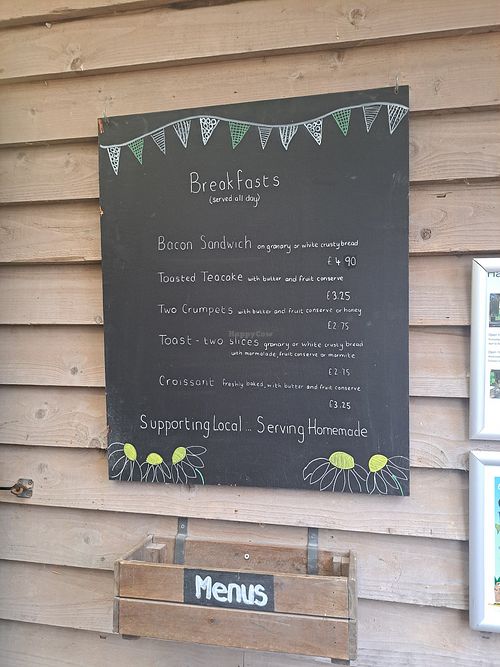 Breakfasts
(served all day)
Bacon Sandwich on granary or white crusty bread
£4.90
Toasted Teacake with butter and fruit conserve
£3.25
Two Crumpets with butter and fruit conserve or honey
£2.75
HappyCow
Toast - two slices granary or white crusty bread
with marmalade, fruit conserve or marmite
£2.75
Croissant freshly baked, with butter and fruit conserve
£3.25
Supporting Local ... Serving Homemade
Menus